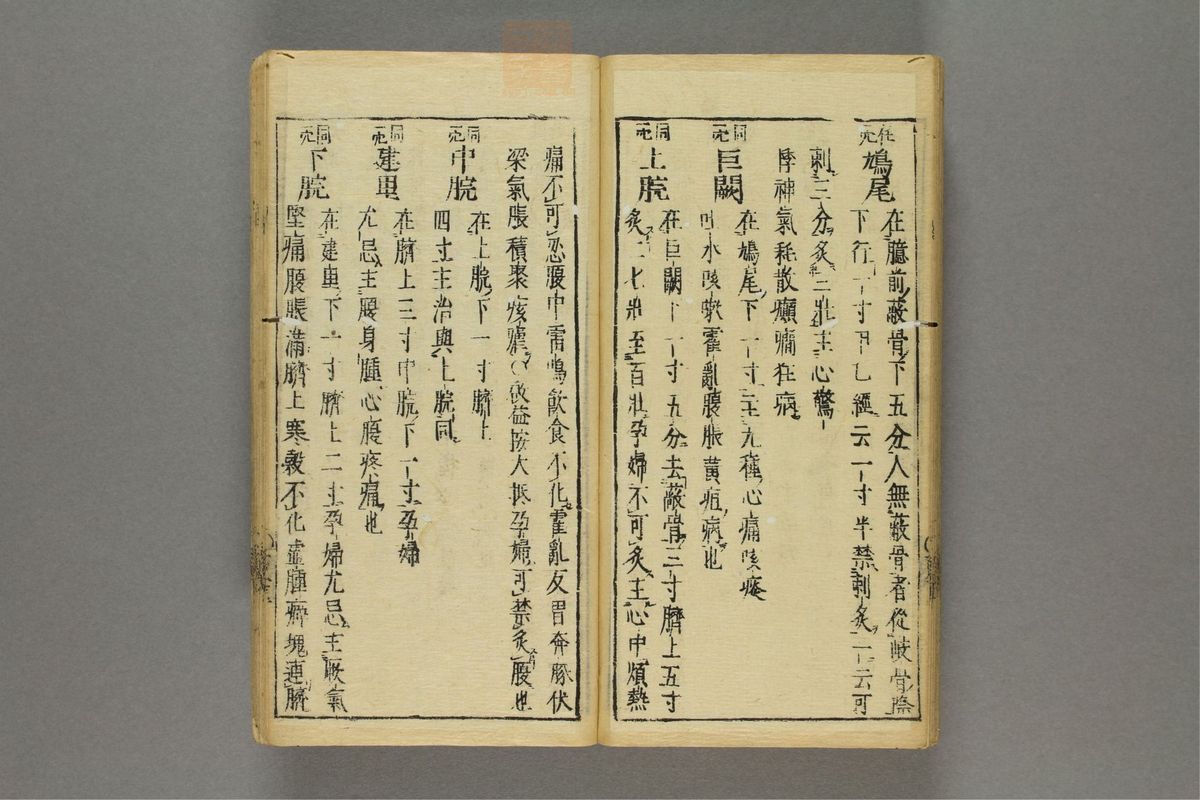 任一穴 鳩尾 在臆前蔽骨下五分人無蔽骨者從歧骨際
下行一寸甲乙經云一寸半禁刺灸一云可
刺三分灸三壯主心驚
悸神氣耗散癲癇狂病
同一穴 巨闕 在鳩尾下一寸主九種心痛痰癊
吐水咳嗽霍亂腹脹黃疸病也
同一穴 上脘 在巨闕下一寸五分去蔽骨三寸臍上五寸
灸二七壯至百壯孕婦不可灸主心中煩熱
痛不可忍腹中雷鳴飲食不化霍亂反胃奔豚伏
梁氣脹積聚痰瘧○啟益按大抵孕婦可禁灸腹也
同一穴 中脘 在上脘下一寸臍上
四寸主治與上脘同
同一穴 建里 在臍上三寸中脘下一寸孕婦
尤忌主腹身腫心腹疼痛也
同一穴 下脘 在建里下一寸臍上二寸孕婦尤忌主厥氣
堅痛腹脹滿臍上寒穀不化虛腫癖塊連臍